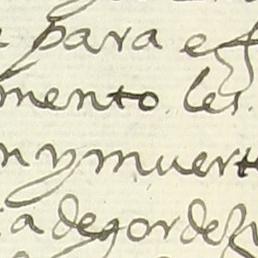 para es
mento. les.
n y muert
a de gordez